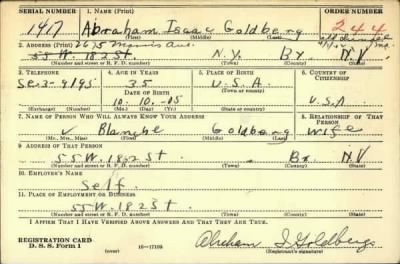 SERIAL NUMBER 1. NAME (Print) ORDER NUMBER
1417 Abraham Isaac Goldberg 244
(First) (Middle) (Last)
2. ADDRESS (Print) 2675 Morris Ave.
55 W. 182 St N.Y. Bx. N.Y
(Number and street or R. F. D. number) (Town) (County) (State)
3. TELEPHONE 4. AGE IN YEARS 5. PLACE OF BIRTH 6. COUNTRY OF CITIZENSHIP
Se. 3-9195 35 U.S.A.
DATE OF BIRTH (Town or county)
10. 10. -05 U.S.A
(Exchange) (Number) (Mo.) (Day) (Yr.) (State or country)
7. NAME OF PERSON WHO WILL ALWAYS KNOW YOUR ADDRESS 8. RELATIONSHIP OF THAT PERSON
v Blanche Goldberg wife
(Mr., Mrs., Miss) (First) (Middle) (Last)
9. ADDRESS OF THAT PERSON
55 W. 182 St Bx. N.Y
(Number and street or R. F. D. number) (Town) (County) (State)
10. EMPLOYER'S NAME
Self
11. PLACE OF EMPLOYMENT OR BUSINESS
55 W. 182 St
(Number and street or R. F. D. number) (Town) (County) (State)
I AFFIRM THAT I HAVE VERIFIED ABOVE ANSWERS AND THAT THEY ARE TRUE.
REGISTRATION CARD
D. S. S. Form 1 (over) 16-17105 Abraham I Goldberg
(Registrant's signature)